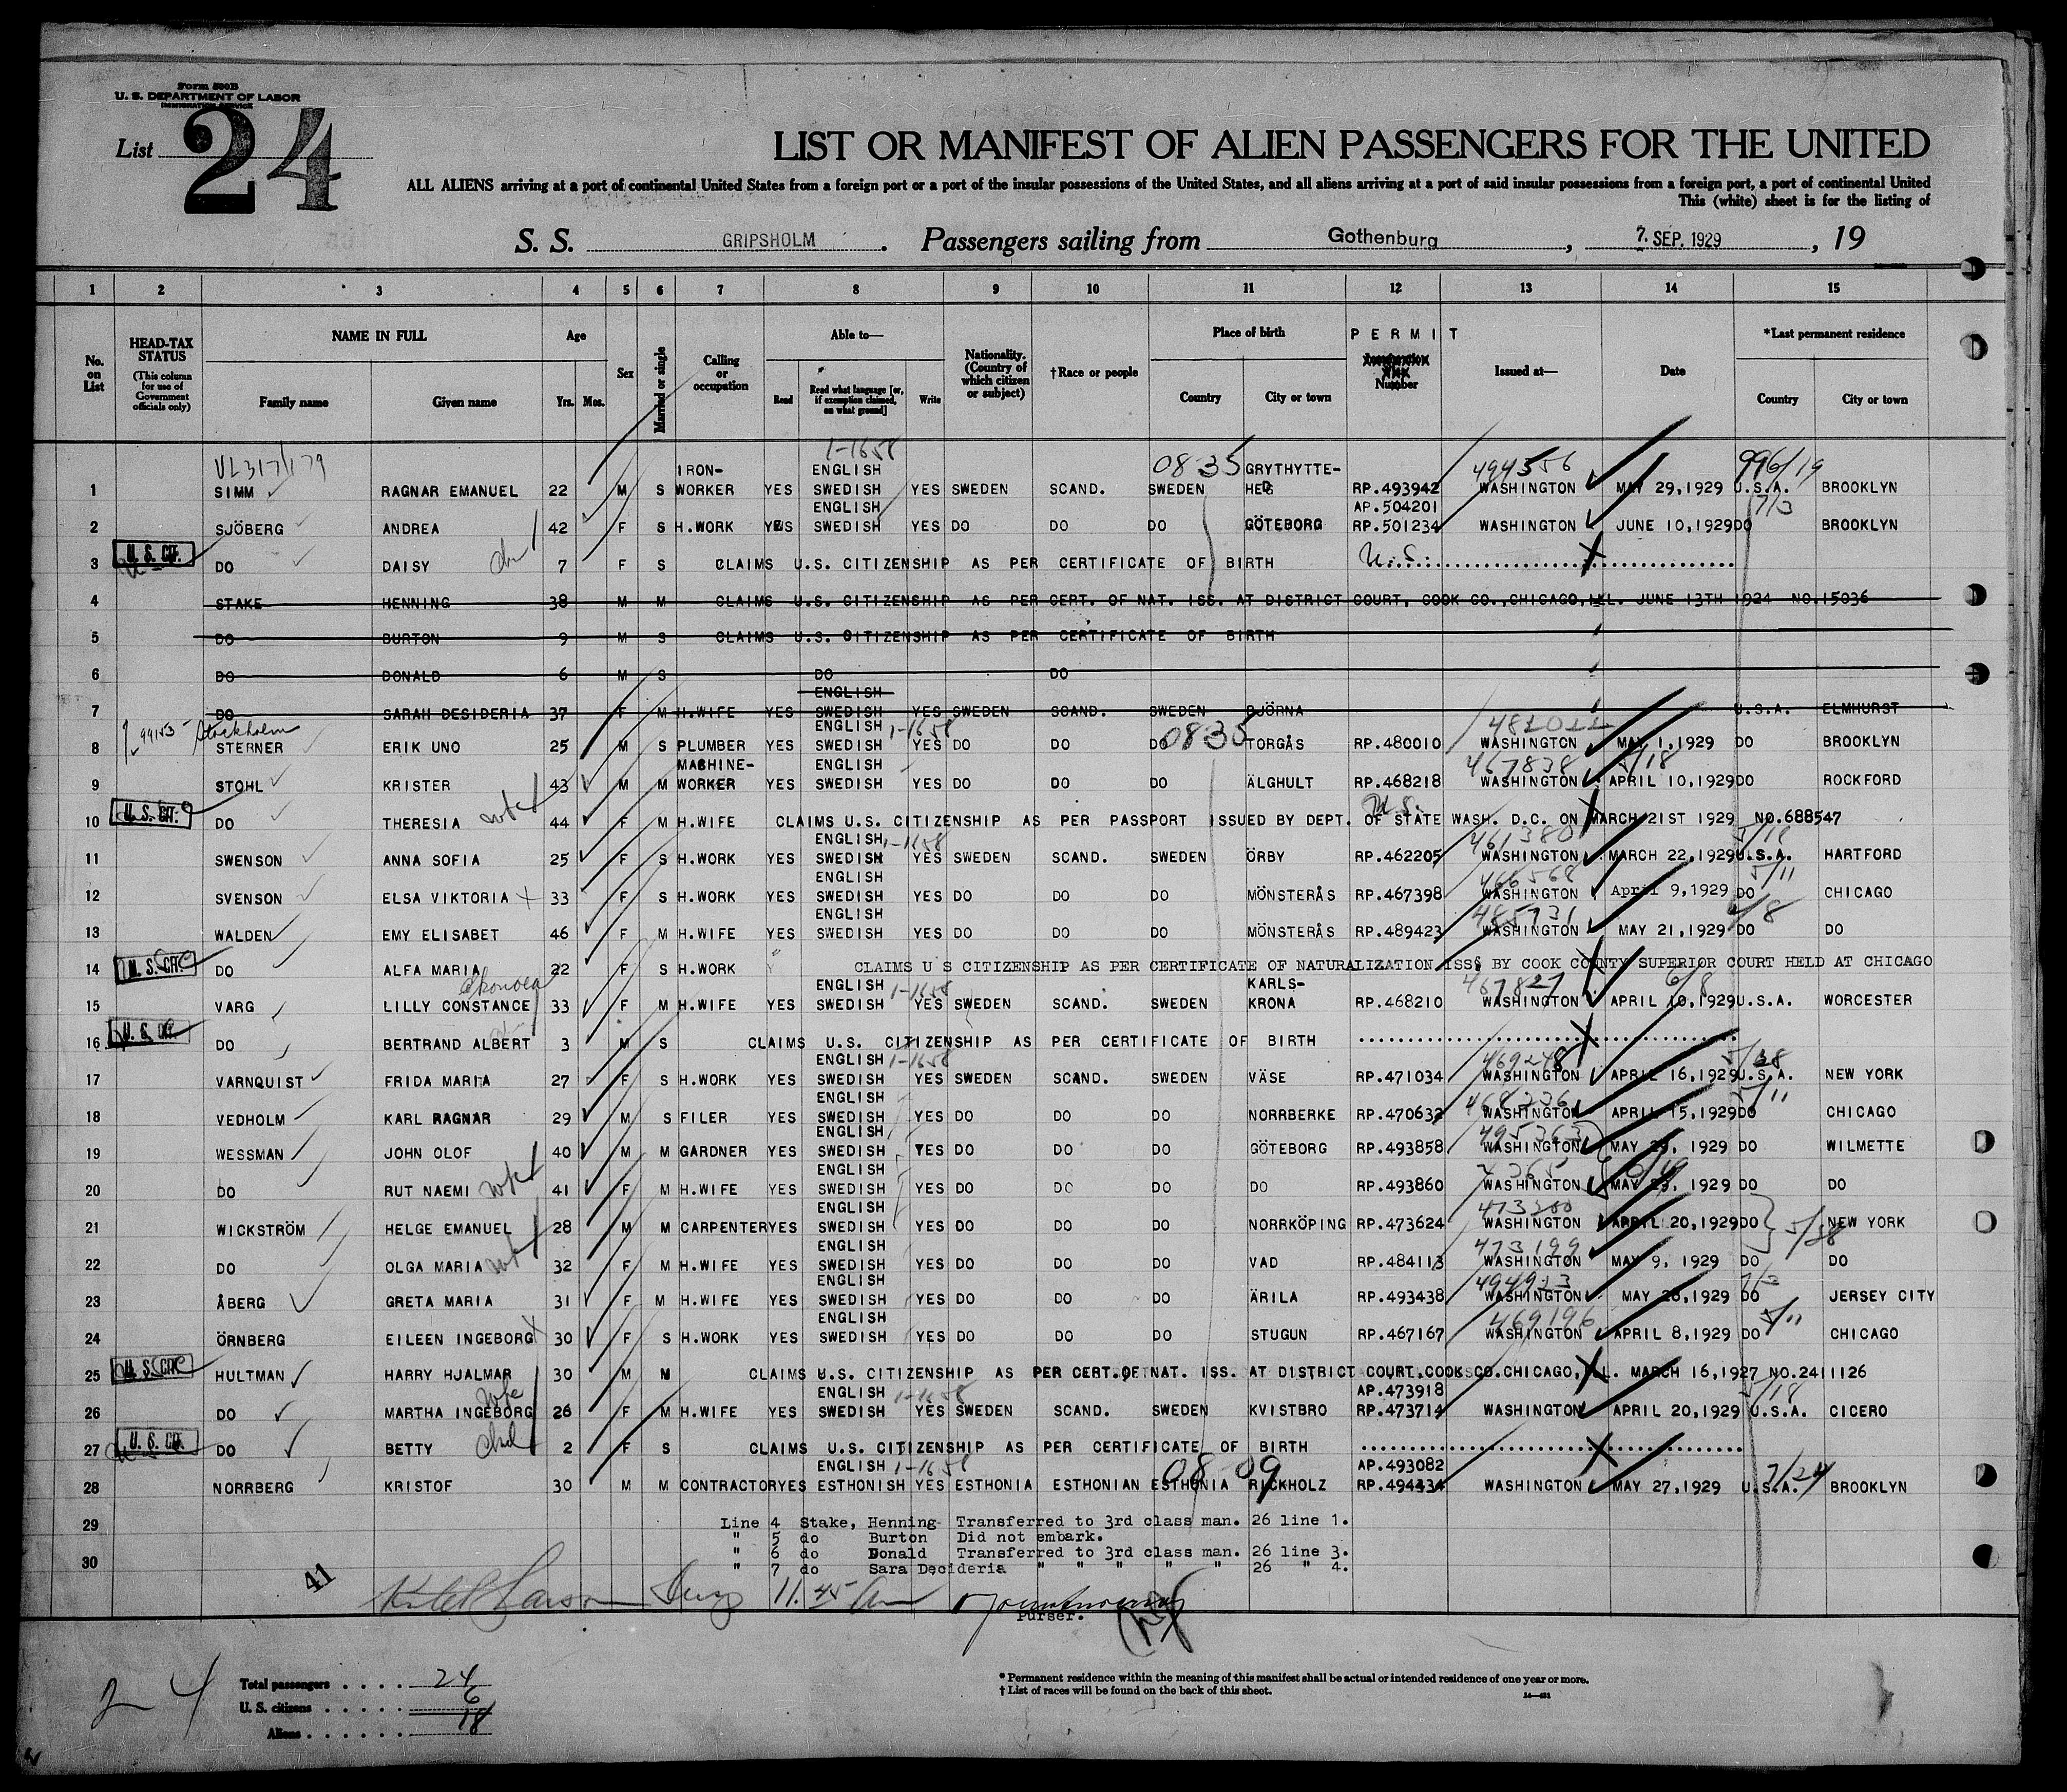 Form 500B
U. S. DEPARTMENT OF LABOR
IMMIGRATION SERVICE
List 24
LIST OR MANIFEST OF ALIEN PASSENGERS FOR THE UNITED
ALL ALIENS arriving at a port of continental United States from a foreign port or a port of the insular possessions of the United States, and all aliens arriving at a port of said insular possessions from a foreign port, a port of continental United
This (white) sheet is for the listing of
S. S. GRIPSHOLM. Passengers sailing from Gothenburg, 7. SEP. 1929, 19
1 2 3 4 5 6 7 8 9 10 11 12 13 14 15
No. on List
HEAD-TAX STATUS (This column for use of Government officials only)
NAME IN FULL Family name Given name
Age Yrs. Mos.
Sex
Married or single
Calling or occupation
Able to— Read Read what language [or, if exemption claimed, on what ground] Write
Nationality. (Country of which citizen or subject)
†Race or people
Place of birth Country City or town
PERMIT Number
Issued at—
Date
*Last permanent residence Country City or town
1-1658
0835 494556 996/19
IRON- ENGLISH GRYTHYTTE-
1 SIMM RAGNAR EMANUEL 22 M S WORKER YES SWEDISH YES SWEDEN SCAND. SWEDEN HED RP.493942 WASHINGTON MAY 29,1929 U.S.A. BROOKLYN
ENGLISH AP.504201 7/3
2 SJÖBERG ANDREA 42 F S H.WORK YES SWEDISH YES DO DO DO GÖTEBORG RP.501234 WASHINGTON JUNE 10,1929 DO BROOKLYN
U. S. CIT.
3 DO DAISY 7 F S CLAIMS U.S. CITIZENSHIP AS PER CERTIFICATE OF BIRTH U.S.
4 STAKE HENNING 38 M M CLAIMS U.S. CITIZENSHIP AS PER CERT. OF NAT. ISS. AT DISTRICT COURT, COOK CO.,CHICAGO,ILL. JUNE 13TH 1924 NO.15036
5 DO BURTON 9 M S CLAIMS U.S. CITIZENSHIP AS PER CERTIFICATE OF BIRTH
6 DO DONALD 6 M S DO DO
ENGLISH
7 DO SARAH DESIDERIA 37 F M H.WIFE YES SWEDISH YES SWEDEN SCAND. SWEDEN BJÖRNA U.S.A. ELMHURST
Stockholm ENGLISH 1-1658 0835
8 STERNER ERIK UNO 25 M S PLUMBER YES SWEDISH YES DO DO DO TORGÅS RP.480010 WASHINGTON MAY 1,1929 DO BROOKLYN
MACHINE- ENGLISH 467838 5/18
9 STOHL KRISTER 43 M M WORKER YES SWEDISH YES DO DO DO ÄLGHULT RP.468218 WASHINGTON APRIL 10,1929 DO ROCKFORD
U. S. CIT. U.S.
10 DO THERESIA wife 44 F M H.WIFE CLAIMS U.S. CITIZENSHIP AS PER PASSPORT ISSUED BY DEPT. OF STATE WASH. D.C. ON MARCH 21ST 1929 NO.688547
ENGLISH 1-1658 461380 5/18
11 SWENSON ANNA SOFIA 25 F S H.WORK YES SWEDISH YES SWEDEN SCAND. SWEDEN ÖRBY RP.462205 WASHINGTON MARCH 22,1929 U.S.A. HARTFORD
ENGLISH 466568 5/11
12 SVENSON ELSA VIKTORIA 33 F S H.WORK YES SWEDISH YES DO DO DO MÖNSTERÅS RP.467398 WASHINGTON April 9,1929 DO CHICAGO
ENGLISH 485731 6/8
13 WALDEN EMY ELISABET 46 F M H.WIFE YES SWEDISH YES DO DO DO MÖNSTERÅS RP.489423 WASHINGTON MAY 21,1929 DO DO
U. S. CIT.
14 DO ALFA MARIA 22 F S H.WORK CLAIMS U S CITIZENSHIP AS PER CERTIFICATE OF NATURALIZATION ISS. BY COOK COUNTY SUPERIOR COURT HELD AT CHICAGO
ENGLISH 1-1658 KARLS- 467827 6/8
15 VARG LILLY CONSTANCE 33 F M H.WIFE YES SWEDISH YES SWEDEN SCAND. SWEDEN KRONA RP.468210 WASHINGTON APRIL 10,1929 U.S.A. WORCESTER
U. S. CIT.
16 DO BERTRAND ALBERT 3 M S CLAIMS U.S. CITIZENSHIP AS PER CERTIFICATE OF BIRTH
ENGLISH 1-1658 469248 5/28
17 VARNQUIST FRIDA MARIA 27 F S H.WORK YES SWEDISH YES SWEDEN SCAND. SWEDEN VÄSE RP.471034 WASHINGTON APRIL 16,1929 U.S.A. NEW YORK
ENGLISH 468236 5/11
18 VEDHOLM KARL RAGNAR 29 M S FILER YES SWEDISH YES DO DO DO NORRBERKE RP.470632 WASHINGTON APRIL 15,1929 DO CHICAGO
ENGLISH 495363
19 WESSMAN JOHN OLOF 40 M M GARDNER YES SWEDISH YES DO DO DO GÖTEBORG RP.493858 WASHINGTON MAY 29, 1929 DO WILMETTE
ENGLISH
20 DO RUT NAEMI wife 41 F M H.WIFE YES SWEDISH YES DO DO DO DO RP.493860 WASHINGTON MAY 29, 1929 DO DO
ENGLISH 473200
21 WICKSTRÖM HELGE EMANUEL 28 M M CARPENTER YES SWEDISH YES DO DO DO NORRKÖPING RP.473624 WASHINGTON APRIL 20,1929 DO 5/28 NEW YORK
ENGLISH 473199
22 DO OLGA MARIA wf 32 F M H.WIFE YES SWEDISH YES DO DO DO VAD RP.484113 WASHINGTON MAY 9, 1929 DO DO
ENGLISH 494923 7/3
23 ÅBERG GRETA MARIA 31 F M H.WIFE YES SWEDISH YES DO DO DO ÄRILA RP.493438 WASHINGTON MAY 28,1929 DO JERSEY CITY
ENGLISH 469196 5/11
24 ÖRNBERG EILEEN INGEBORG 30 F S H.WORK YES SWEDISH YES DO DO DO STUGUN RP.467167 WASHINGTON APRIL 8,1929 DO CHICAGO
U. S. CIT.
25 HULTMAN HARRY HJALMAR 30 M M CLAIMS U.S. CITIZENSHIP AS PER CERT.OF NAT. ISS. AT DISTRICT COURT.COOK CO.CHICAGO, ILL. MARCH 16,1927 NO.2411126
wife ENGLISH 1-1658 AP.473918 5/18
26 DO MARTHA INGEBORG 26 F M H.WIFE YES SWEDISH YES SWEDEN SCAND. SWEDEN KVISTBRO RP.473714 WASHINGTON APRIL 20,1929 U.S.A. CICERO
U. S. CIT.
27 DO BETTY chd 2 F S CLAIMS U.S. CITIZENSHIP AS PER CERTIFICATE OF BIRTH
ENGLISH 1-1658 08-09 AP.493082 7/24
28 NORRBERG KRISTOF 30 M M CONTRACTOR YES ESTHONISH YES ESTHONIA ESTHONIAN ESTHONIA RICKHOLZ RP.494434 WASHINGTON MAY 27,1929 U.S.A. BROOKLYN
29 Line 4 Stake, Henning Transferred to 3rd class man. 26 line 1.
" 5 do Burton Did not embark.
30 " 6 do Donald Transferred to 3rd class man. 26 line 3.
" 7 do Sara Decideria " " " " 26 " 4.
41
11.45 am
Purser.
24
Total passengers 24
U. S. citizens 6
Aliens 18
* Permanent residence within the meaning of this manifest shall be actual or intended residence of one year or more.
† List of races will be found on the back of this sheet.